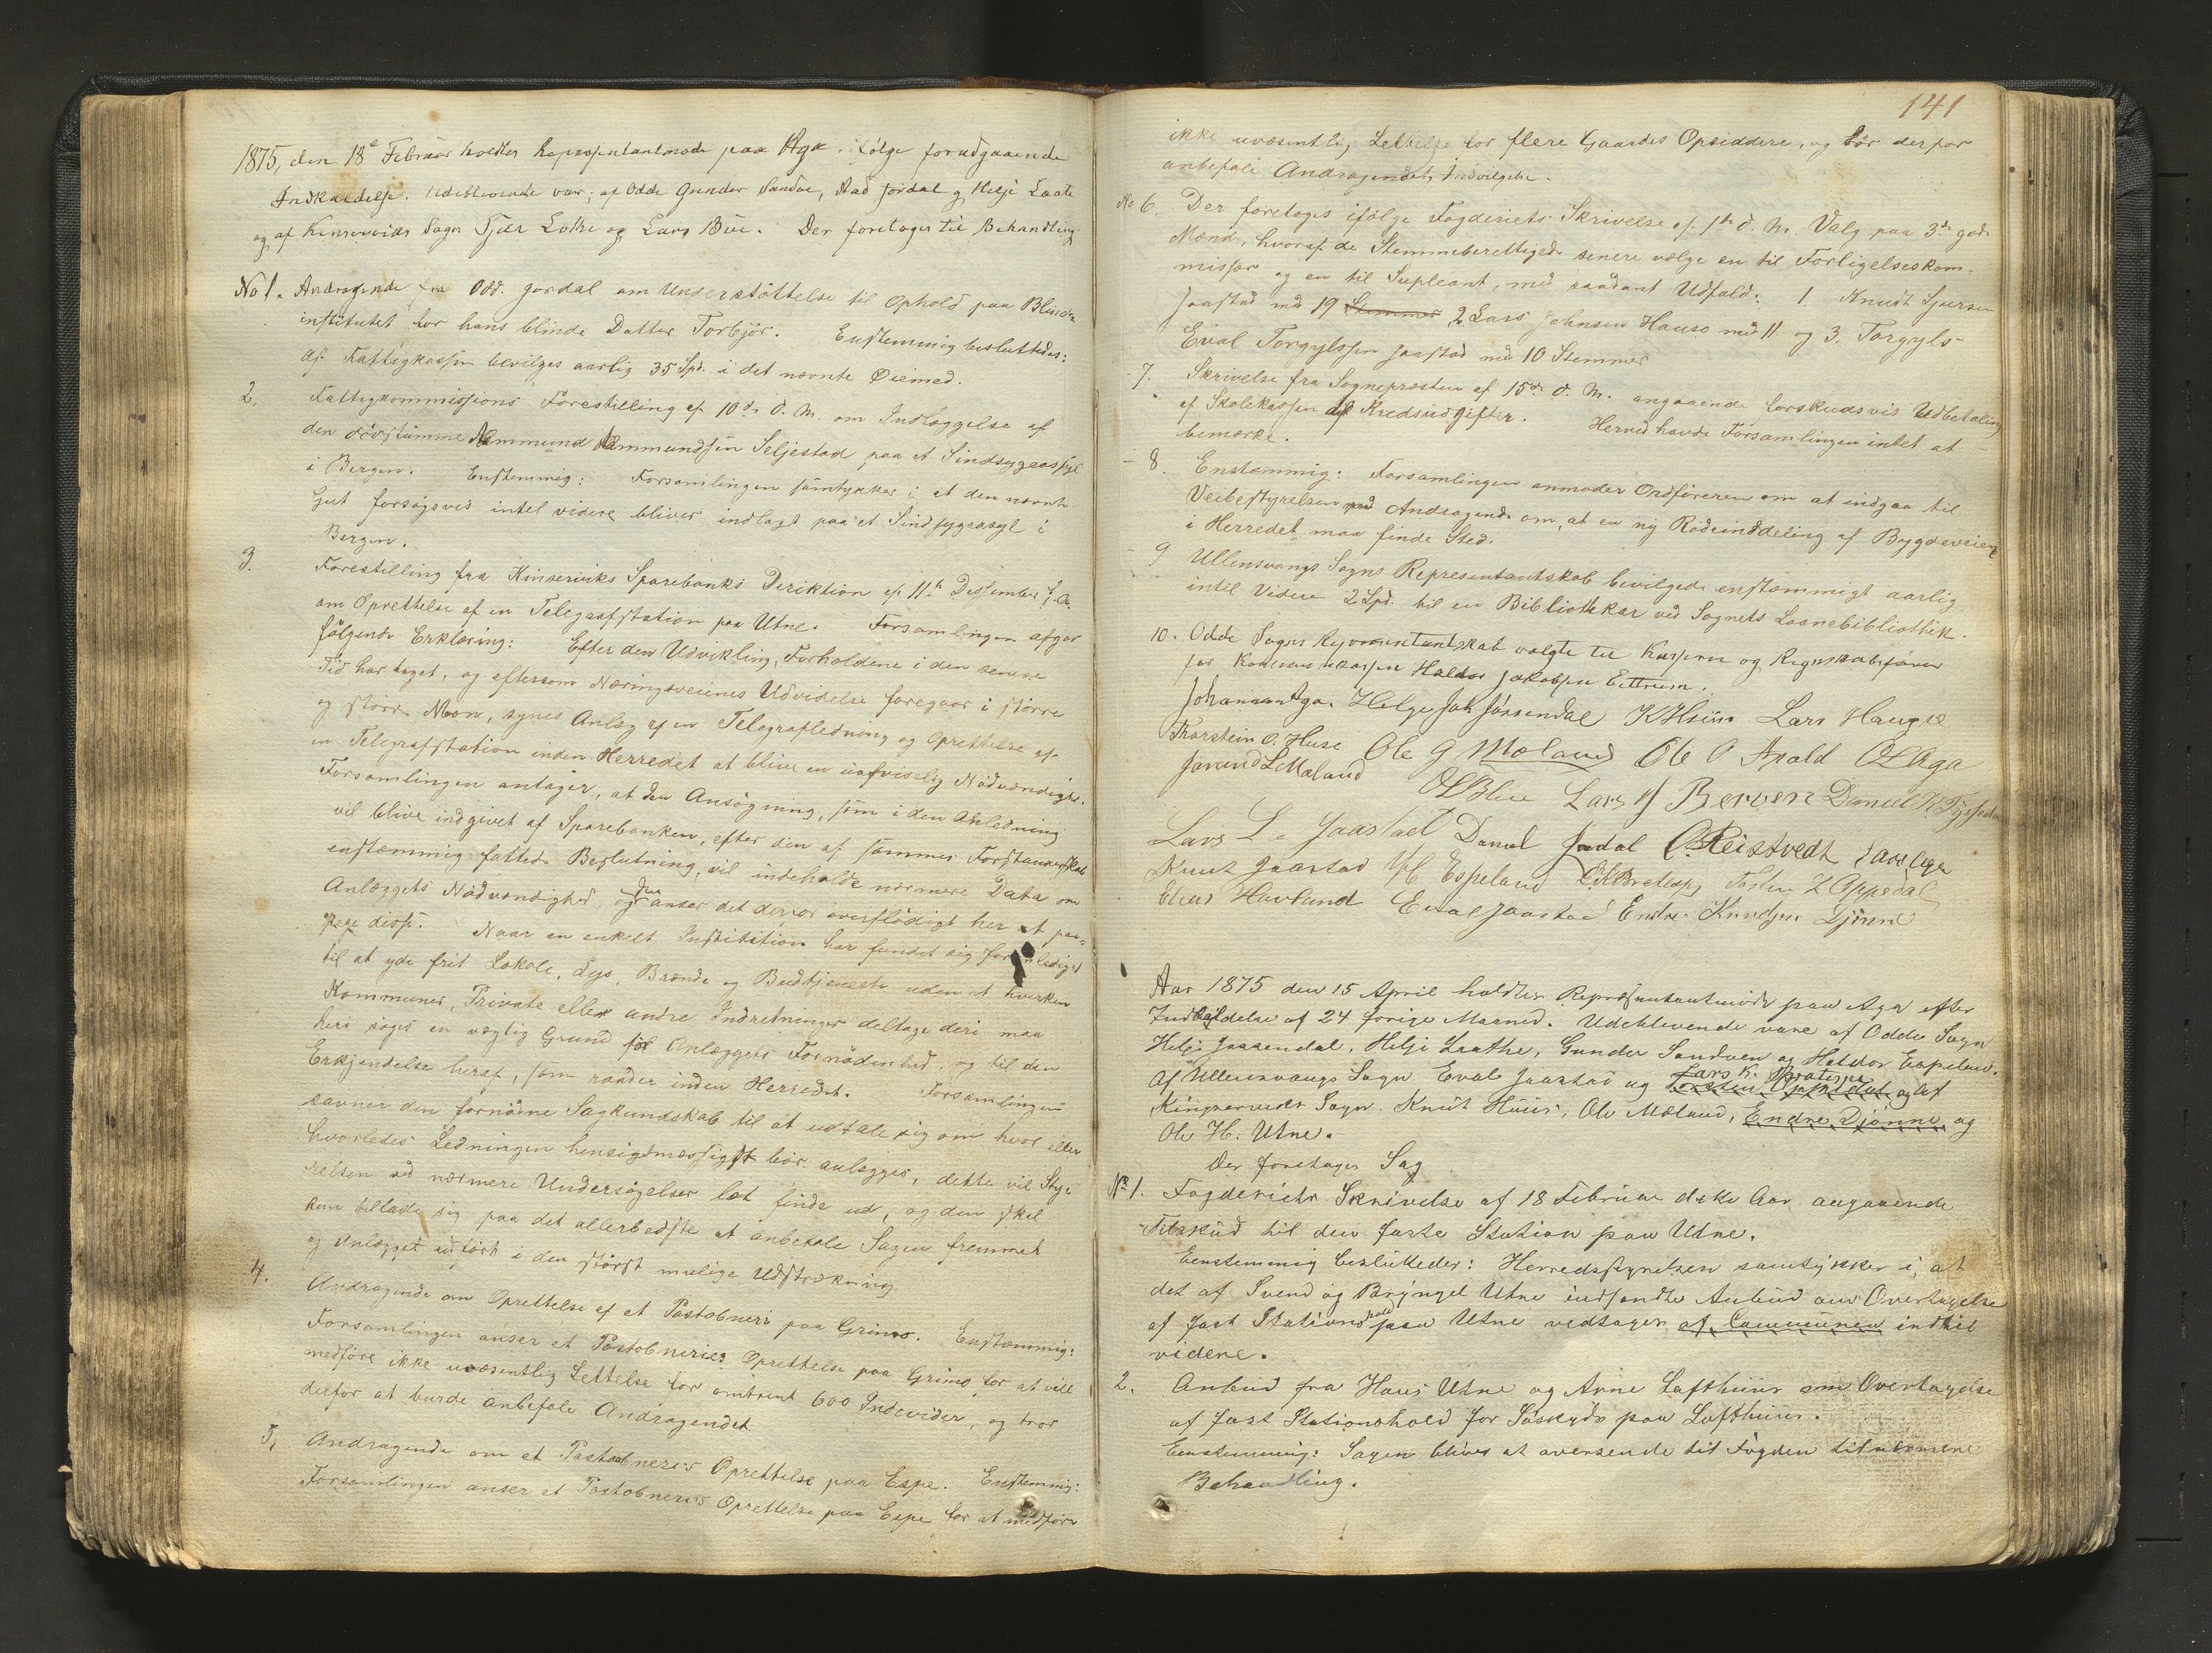 1875, den 18de Februar holdtes Repræsentantmøde paa Aga ifølge forudgaaende
Indkaldelse. Udeblevende var; af Odde Gunder Sandve, Aad Jordal og Helje Laate
og af Kinserviks Sogn Tjær Lothe og Lars Bue. Der foretoges til Behandling:
No 1. Andragende fra Odd. Jordal om Understöttelse til Ophold paa Blinde-
institutet for hans blinde Datter Torbjör. Enstemmig besluttedes:
af Fattigkassen bevilges aarlig 35 Spd. i det nævnte Øiemed.
2. Fattigkommissions Forestilling af 10de d. M. om Indlæggelse af
den dövstumme Ammund Ammundsen Seljestad paa et Sindsygeasyl
i Bergen. Enstemmig: Forsamlingen samtykker i, at den nævnte
Gut forsögsvis intil videre bliver indlagt paa et Sindsygeasyl i
Bergen.
3. Forestilling fra Kinserviks Sparebanks Direktion af 11te Dessember f. A.
om Oprettelse af en Telegrafstation paa Utne. Forsamlingen afgav
fölgende Erklæring: Efter den Udvikling, Forholdene i den senere
Tid har taget, og eftersom Næringsveienes Udvidelse foregaar i större
og större Mon, synes Anlæg af en Telegrafledning og Oprettelse af
en Telegrafstation inden Herredet at blive en uafviselig Nödvendighed.
Forsamlingen antager, at den Ansögning, som i den Anledning
vil blive indgivet af Sparebanken, efter den af sammes Forstanderskab
enstemmig fattede Beslutning, vil indeholde nærmere Data om
Anlæggets Nödvendighed, og den anser det derfor overflödigt her at paa-
pege disse. Naar en enkelt Institition har fundet sig foranlediget
til at yde frit Lokale, Lys, Brænde og Budtjeneste uden at hverken
Kommuner, Private eller andre Indretninger deltage deri maa
heri söges en vægtig Grund for Anlæggets Fornödenhed, og til den
Erkjendelse heraf, som raader inden Herredet. Forsamlingen
savner den fornödne Sagkundskab til at udtale sig om hvor eller
hvorledes Ledningen hensigtmæssigst bör anlægges, dette vil Sty-
relsen ved nærmere Undersögelser let finde ud, og den skal
kun tillade sig paa det allerbedste at anbefale Sagen fremmet
og Anlægget udfört i den störst mulige Udstrækning.
4. Andragende om Oprettelse af et Postobneri paa Grimo. Enstemmig:
Forsamlingen anser et Postobneries Oprettelse paa Grimo for at ville
medföre ikke uvæsentlig Lettelse for omtrent 600 Indevider, og tror
derfor at burde anbefale Andragendet.
5, Andragende om et Postobneri's Oprettelse paa Espe. Enstemmig:
Forsamlingen anser et Postobneri's Oprettelse paa Espe for at medföre
141
ikke uvæsentlig Lettelse for flere Gaardes Opsiddere, og bör derfor
anbefale Andragendets Indvilgelse.
No 6. Der foretoges ifölge Fogderiets Skrivelse af 1ste d. M. Valg paa 3de gode
Mænd, hvoraf de Stemmeberettigede senere vælge en til Forligelseskom-
missær og en til Supleant, med saadant Udfald: 1. Knudt Sjursen
Jaastad med 19 Stemmer 2 Lars Johnsen Hauso med 11 og 3. Torgyls-
Eival Torgylssen Jaastad med 10 Stemmer
- 7. Skrivelse fra Sognepræsten af 15de d. M. angaaende forskudsvis Udbetaling
af Skolekassen til Kredsudgifter. Herved havde Forsamlingen intet at -
bemærke.
- 8. Enstemmig: Forsamlingen anmoder Ordföreren om at indgaa til
Veibestyrelsen med Andragende om, at en ny Rodeinddeling af Bygdeveiene
i Herredet maa finde Sted.
- 9 Ullensvangs Sogns Representantskab bevilgede enstemmigt aarlig
intil Videre 2 Spd. til en Bibliothekar ved Sognets Laanebibliothek.
10. Odde Sogns Representantskab valgte til Kasserer og Regnskabsförer
for Haldor Jakobsen Eittrum.
Johannes Aga. Helge Joh Jössendal K Huus Lars Hauge
Thorstein O. Huse Ole G Mæland Ole O Apold O Aga
Jorand L Mæland O Blie Lars H Berven Daniel K. Tyssedal
Lars L. Jaastad Daniel Jordal O. Reistvedt Aga
Knut Jaastad H Espeland L K Bratespe Tosten L Oppedal
Elias Hovland Eival Jaastad Endre Knudsen Djönne
Aar 1875 den 15 April holdtes Repræsentantmöde paa Aga efter
Indkaldelse af 24 forige Maaned. Udeblevende vare af Odde Sogn
Helje Jøssendal, Helje Laathe, Gunder Sandven og Haldor Espeland.
Af Ullensvangs Sogn Eival Jaastad og Torsten Oppedal Lars K. Bratespe og af
Kingservicks Sogn. Knut Huus, Ole Mæland, Endre Djönne og
Ole H. Utne.
Der foretoges Sag
No 1. Fogderiets Skrivelse af 18 Februar dette Aar angaaende
Tilskud til den faste Station paa Utne.
Eenstemmig beslutedes: Herredsstyrelsen samtykker i, at
det af Svend og Brÿngel Utne indsendte Anbud om Overtagelse
af fast Stationshold paa Utne vedtages af Communen indtil
videre.
2. Anbud fra Hans Utne og Arne Lofthuus om Overtagelse
af fast Stationshold for Söskyds paa Lofthuus.
Eenstemmig: Sagen bliver at oversende til Fogden til nærmere
Behandling.